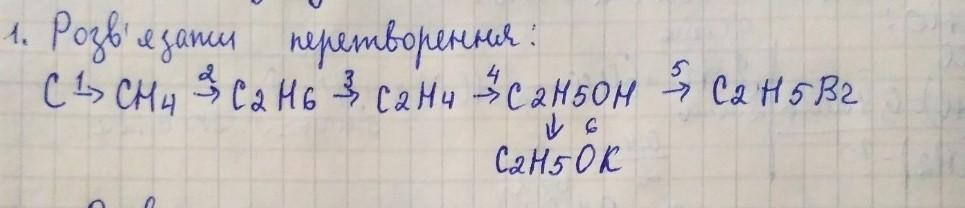 1. Розв'язати перетворення:
C 1→ CH4 2→ C2H6 3→ C2H4 4→ C2H5OH 5→ C2H5Br
↓ 6
C2H5OK